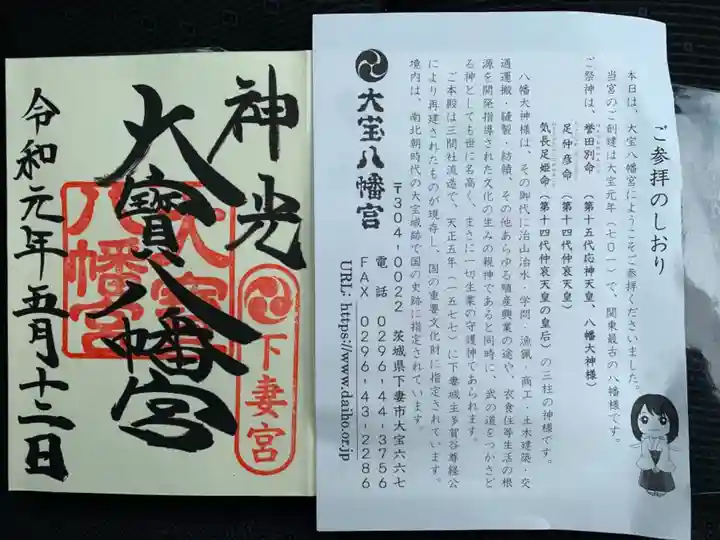 神光
大寳八幡宮
令和元年五月十二日
大宝八幡宮
下妻宮
ご参拝のしおり
本日は、大宝八幡宮にようこそご参拝くださいました。
当宮のご創建は大宝元年（七〇一）で、関東最古の八幡様です。
ご祭神は、誉田別命（第十五代応神天皇、八幡大神様）
足仲彦命（第十四代仲哀天皇）
気長足姫命（第十四代仲哀天皇の皇后）の三柱の神様です。
八幡大神様は、その御代に治山治水・学問・漁猟・商工・土木建築・交
通運搬・縫製・紡績、その他あらゆる殖産興業の途や、衣食住等生活の根
源を開発指導された文化の生みの親神であると同時に、武の道をつかさど
る神としても世に名高く、まさに一切生業の守護神であられます。
ご本殿は三間社流造で、天正五年（一五七七）に下妻城主多賀谷尊経公
により再建されたものが現存し、国の重要文化財に指定されています。
境内は、南北朝時代の大宝城跡で国の史跡に指定されています。
大宝八幡宮
〒304-0022 茨城県下妻市大宝六六七
電話 0296-44-3756
FAX 0296-43-2286
URL: https://www.daiho.or.jp